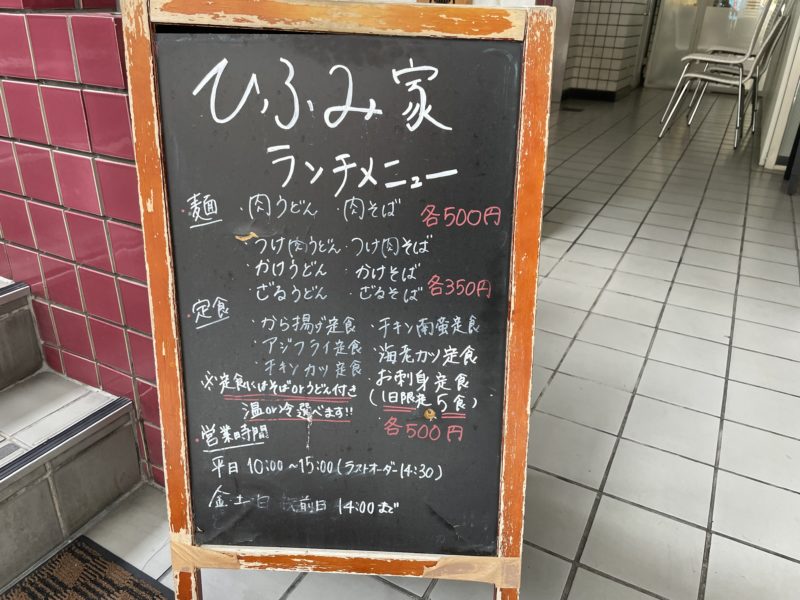 ひふみ家
ランチメニュー
・麺 ・肉うどん ・肉そば 各500円
つけ肉うどん・つけ肉そば
かけうどん かけそば
ざるうどん ざるそば 各350円
・定食
・から揚げ定食 ・チキン南蛮定食
・アジフライ定食 海老カツ定食
チキンカツ定食 お刺身定食
※定食にはそばorうどん付き (1日限定5食)
温or冷選べます!! 各500円
・営業時間
平日 10:00~15:00(ラストオーダー14:30)
金・土・日 前日 14:00まで